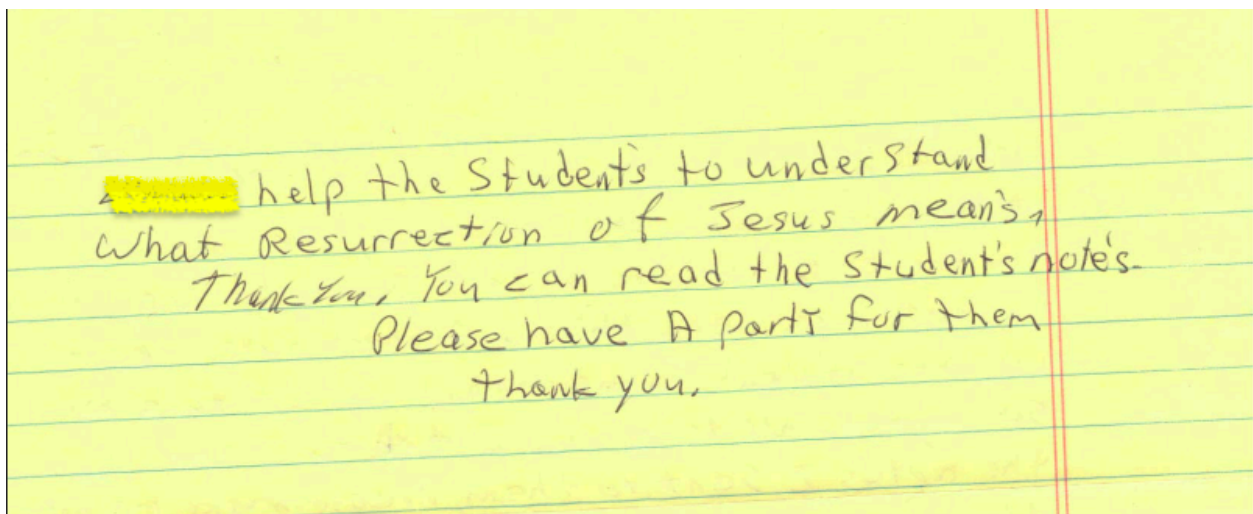 help the Student's to understand
what Resurrection of Jesus mean's,
Thank You, You can read the Student's note's.
Please have A Party for them
thank you.